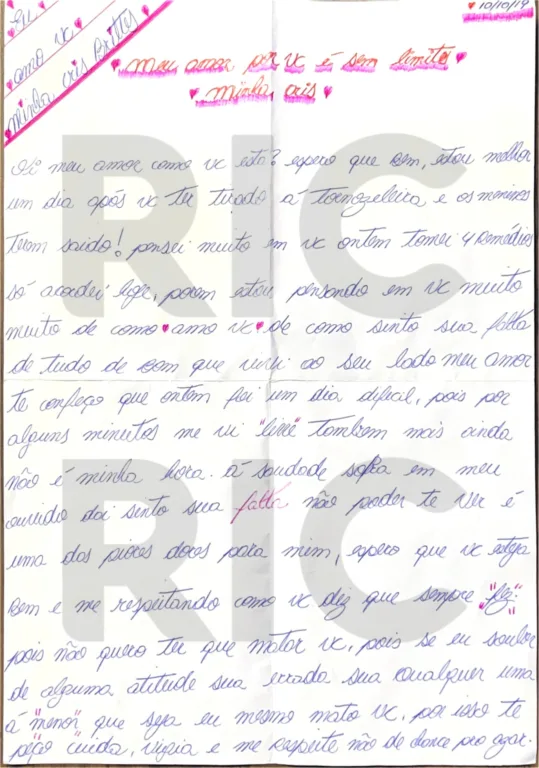 10/10/19
Eu
amo vc
minha cris Brittes
Meu amor por vc é sem limite
minha cris
Oi meu amor como vc está? espero que bem, estou melhor
um dia após vc ter tirado a tornozeleira e os meninos
terem saido! pensei muito em vc ontem tomei 4 Remédios
só acordei hoje, porem estou pensando em vc muito
muito de como amo vc de como sinto sua falta
de tudo de bom que vivi ao seu lado meu amor
te confeço que ontem foi um dia dificil, pois por
alguns minutos me vi "livre" tambem mais ainda
não é minha hora. a saudade sopra em meu
ouvido doi sinto sua falta não poder te ver é
uma das piores dores para mim, espero que vc esteja
bem e me respeitando como vc diz que sempre "fez"
pois não quero ter que matar vc, pois se eu souber
de alguma atitude sua errada sua qualquer uma
á "menor" que seja eu mesmo mato vc, por isso te
peço cuida, vigia e me respeite não de chance pro azar.
RIC
RIC